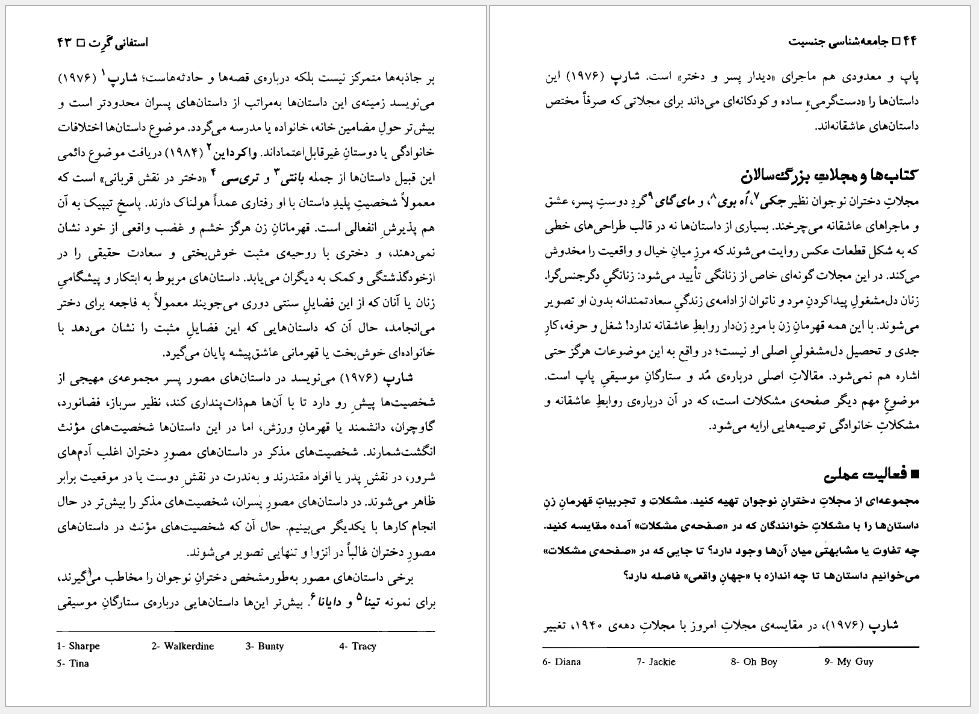 استفانی گَرِت □ ۴۳
بر جاذبه‌ها متمرکز نیست بلکه درباره‌ی قصه‌ها و حادثه‌هاست؛ شارپ۱ (۱۹۷۶)
می‌نویسد زمینه‌ی این داستان‌ها به‌مراتب از داستان‌های پسران محدودتر است و
بیش‌تر حولِ مضامین خانه، خانواده یا مدرسه می‌گردد. موضوع داستان‌ها اختلافات
خانوادگی یا دوستانِ غیرقابل‌اعتمادند. واکرداین۲ (۱۹۸۴) دریافت موضوع دائمی
این قبیل داستان‌ها از جمله بانتی۳ و تری‌سی۴ «دختر در نقش قربانی» است که
معمولاً شخصیتِ پلیدِ داستان با او رفتاری عمداً هولناک دارند. پاسخِ تیپیک به آن
هم پذیرشِ انفعالی است. قهرمانانِ زن هرگز خشم و غضب واقعی از خود نشان
نمی‌دهند، و دختری با روحیه‌ی مثبت خوش‌بختی و سعادت حقیقی را در
ازخودگذشتگی و کمک به دیگران می‌یابد. داستان‌های مربوط به ابتکار و پیشگامیِ
زنان یا آنان که از این فضایلِ سنتی دوری می‌جویند معمولاً به فاجعه برای دختر
می‌انجامد، حال آن که داستان‌هایی که این فضایلِ مثبت را نشان می‌دهد با
خانواده‌ای خوش‌بخت یا قهرمانی عاشق‌پیشه پایان می‌گیرد.
شارپ (۱۹۷۶) می‌نویسد در داستان‌های مصور پسر مجموعه‌ی مهیجی از
شخصیت‌ها پیشِ رو دارد تا با آن‌ها هم‌ذات‌پنداری کند، نظیر سرباز، فضانورد،
گاوچران، دانشمند یا قهرمانِ ورزش، اما در این داستان‌ها شخصیت‌های مؤنث
انگشت‌شمارند. شخصیت‌های مذکر در داستان‌های مصورِ دختران اغلب آدم‌های
شرور، در نقشِ پدر یا افراد مقتدرند و به‌ندرت در نقشِ دوست یا در موقعیت برابر
ظاهر می‌شوند. در داستان‌های مصورِ پسران، شخصیت‌های مذکر را بیش‌تر در حال
انجام کارها با یکدیگر می‌بینیم. حال آن که شخصیت‌های مؤنث در داستان‌های
مصورِ دختران غالباً در انزوا و تنهایی تصویر می‌شوند.
برخی داستان‌های مصور به‌طورمشخص دخترانِ نوجوان را مخاطب می‌گیرند،
برای نمونه تینا۵ و دایانا۶. بیش‌تر این‌ها داستان‌هایی درباره‌ی ستارگانِ موسیقی
1- Sharpe 2- Walkerdine 3- Bunty 4- Tracy
5- Tina
۴۴ □ جامعه‌شناسی جنسیت
پاپ و معدودی هم ماجرای «دیدار پسر و دختر» است. شارپ (۱۹۷۶) این
داستان‌ها را «دست‌گرمیِ» ساده و کودکانه‌ای می‌داند برای مجلاتی که صرفاً مختص
داستان‌های عاشقانه‌اند.
کتاب‌ها و مجلاتِ بزرگ‌سالان
مجلاتِ دختران نوجوان نظیر جکی۷، اُه بوی۸، و مای گای۹ گردِ دوستِ پسر، عشق
و ماجراهای عاشقانه می‌چرخند. بسیاری از داستان‌ها نه در قالب طراحی‌های خطی
که به شکل قطعات عکس روایت می‌شوند که مرزِ میانِ خیال و واقعیت را مخدوش
می‌کند. در این مجلات گونه‌ای خاص از زنانگی تأیید می‌شود: زنانگیِ دگرجنس‌گرا.
زنان دل‌مشغولِ پیداکردنِ مرد و ناتوان از ادامه‌ی زندگیِ سعادتمندانه بدون او تصویر
می‌شوند. با این همه قهرمانِ زن با مردِ زن‌دار روابطِ عاشقانه ندارد! شغل و حرفه، کارِ
جدی و تحصیل دل‌مشغولیِ اصلی او نیست؛ در واقع به این موضوعات هرگز حتی
اشاره هم نمی‌شود. مقالاتِ اصلی درباره‌ی مُد و ستارگانِ موسیقیِ پاپ است.
موضوعِ مهم دیگر صفحه‌ی مشکلات است، که در آن درباره‌ی روابطِ عاشقانه و
مشکلاتِ خانوادگی توصیه‌هایی ارایه می‌شود.
■ فعالیت عملی
مجموعه‌ای از مجلاتِ دخترانِ نوجوان تهیه کنید. مشکلات و تجربیاتِ قهرمانِ زنِ
داستان‌ها را با مشکلاتِ خوانندگان که در «صفحه‌ی مشکلات» آمده مقایسه کنید.
چه تفاوت یا مشابهتی میان آن‌ها وجود دارد؟ تا جایی که در «صفحه‌ی مشکلات»
می‌خوانیم داستان‌ها تا چه اندازه با «جهانِ واقعی» فاصله دارد؟
شارپ (۱۹۷۶)، در مقایسه‌ی مجلاتِ امروز با مجلاتِ دهه‌ی ۱۹۴۰، تغییر
6- Diana 7- Jackie 8- Oh Boy 9- My Guy